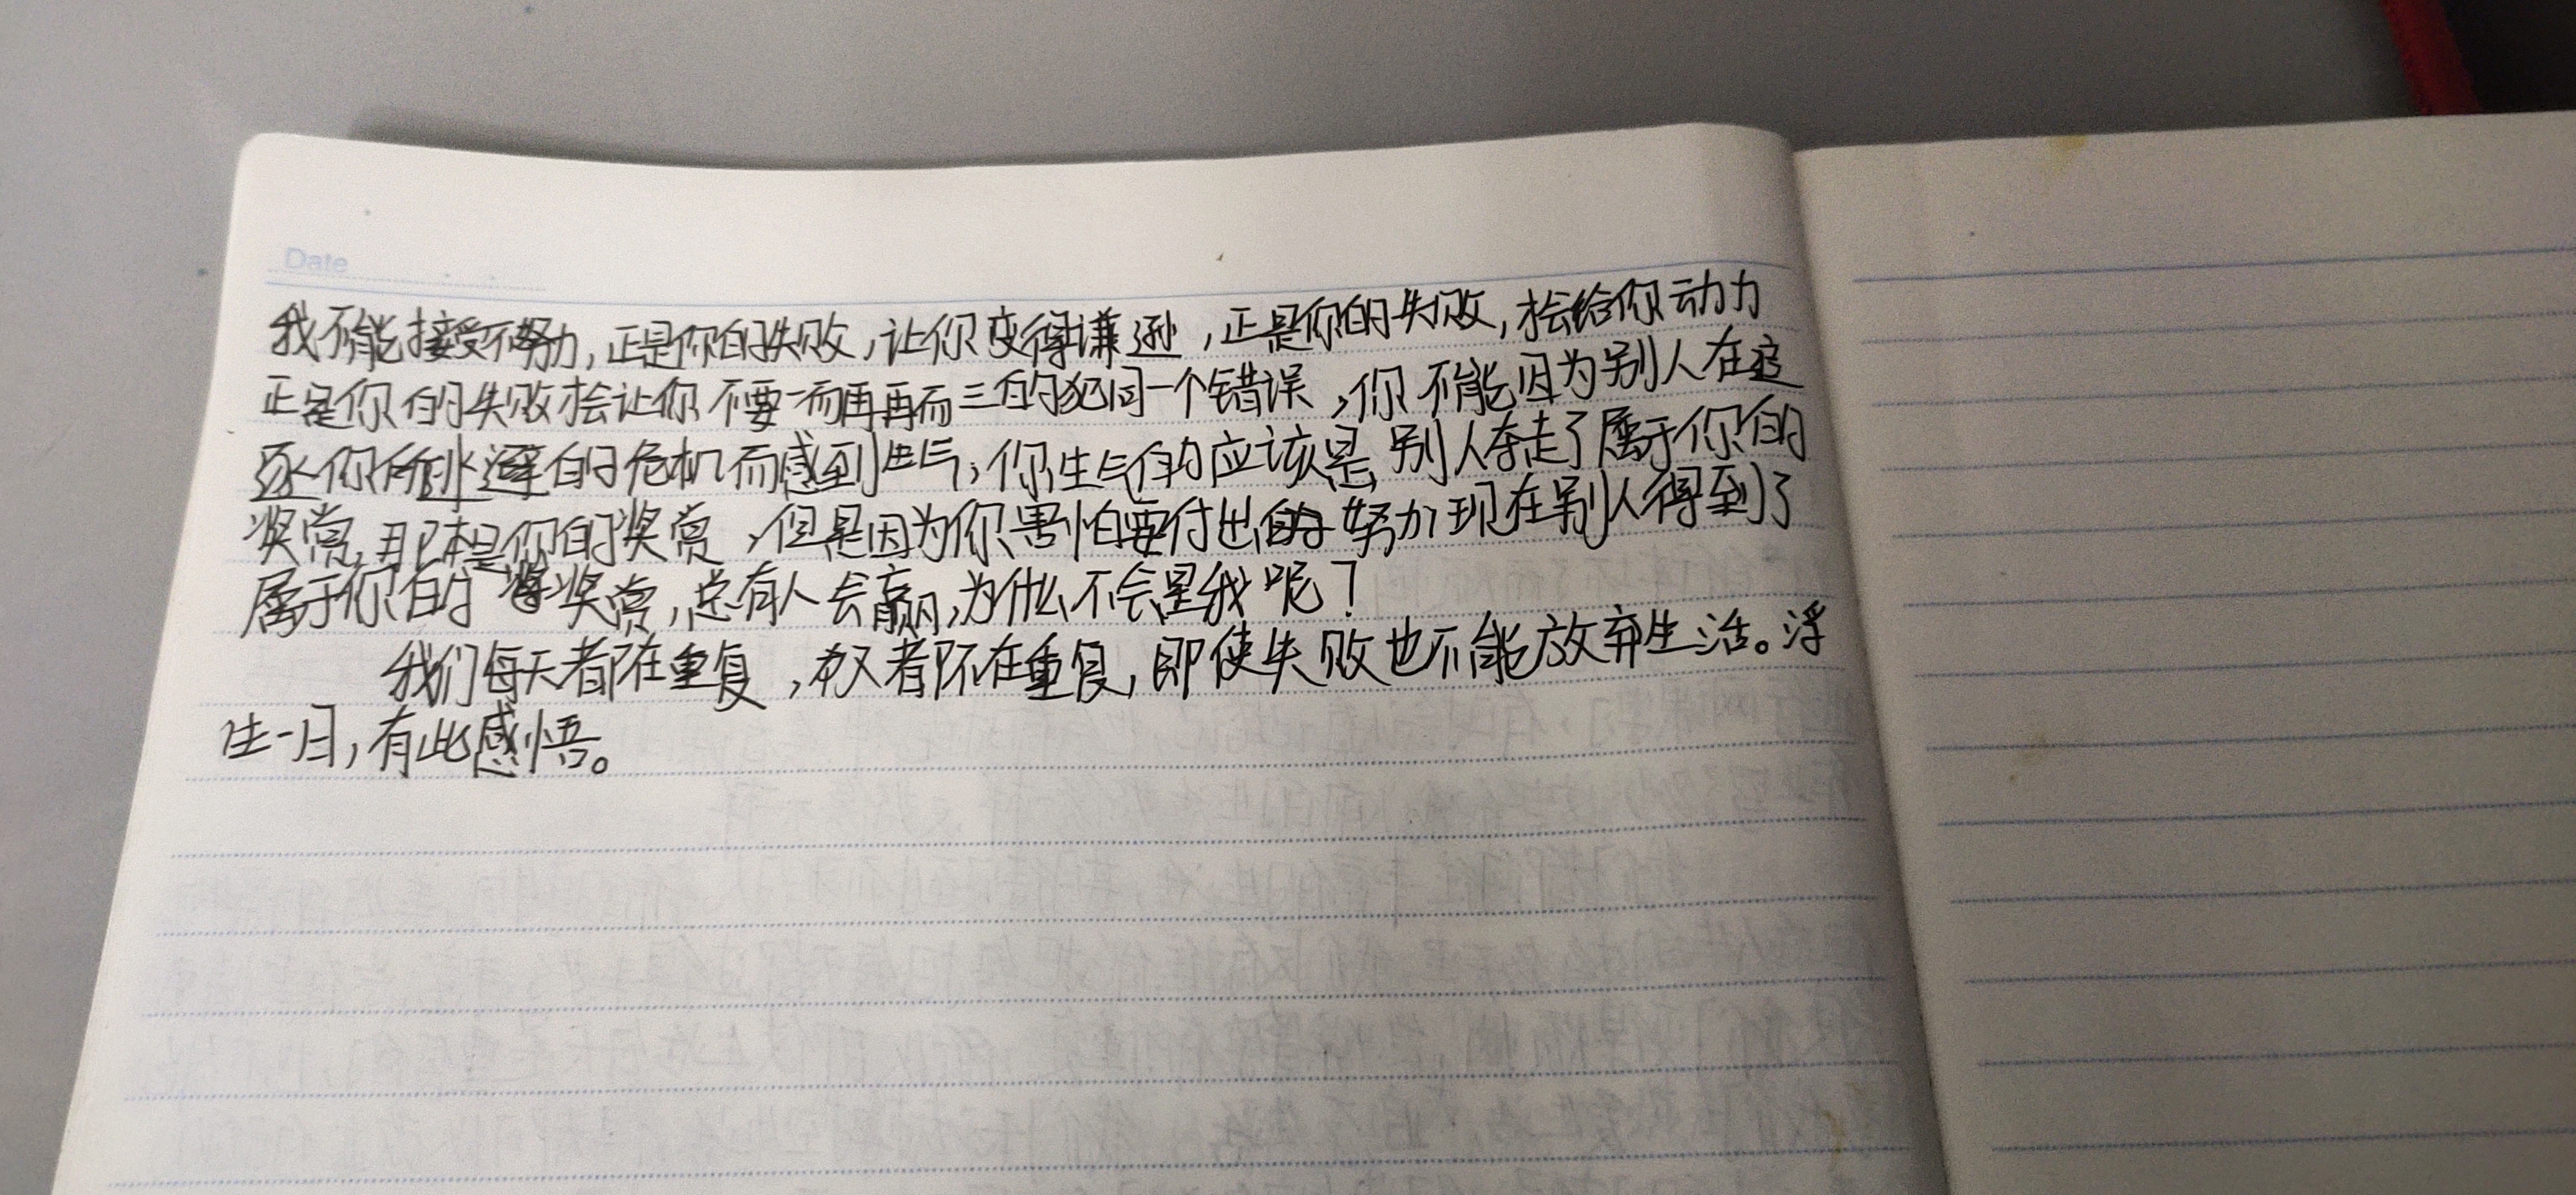 Date
我不能接受不努力,正是你的失败,让你变得谦逊,正是你的失败,才会给你动力
正是你的失败才会让你不要一而再再而三的犯同一个错误,你不能因为别人在追
逐你所逃避的危机而感到生气,你生气的应该是,别人夺走了属于你的
奖赏,那本是你的奖赏,但是因为你害怕要付出的努力现在别人得到了
属于你的奖赏,总有人会赢,为什么不会是我呢?
我们每天都在重复,却又都不在重复,即使失败也不能放弃生活。浮
生一日,有此感悟。